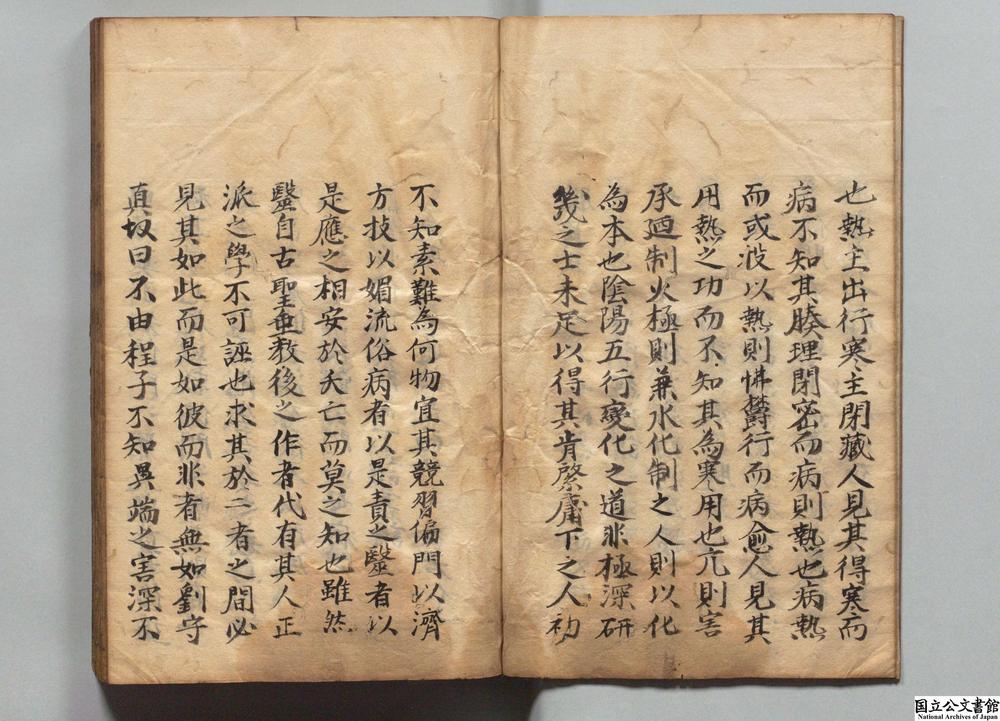 也熱主出行寒主閉藏人見其得寒而
病不知其腠理閉密而病則熱也病熱
而或投以熱則怫欝行而病愈人見其
用熱之功而不知其為寒用也亢則害
承廼制火極則兼水化制之人則以化
為本也陰陽五行變化之道非極深研
幾之士未足以得其肯綮庸下之人初
不知素難為何物宜其競習偏門以濟
方技以媚流俗病者以是責之毉者以
是應之相安於夭亡而莫之知也雖然
毉自古聖垂教後之作者代有其人正
派之學不可誣也求其於二者之間必
見其如此而是如彼而非者無如劉守
真故曰不由程子不知異端之害深不
国立公文書館
National Archives of Japan